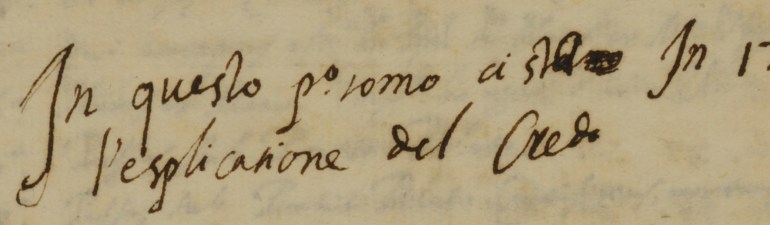 In questo p.º tomo ci sta In
l'esplicatione del Credo